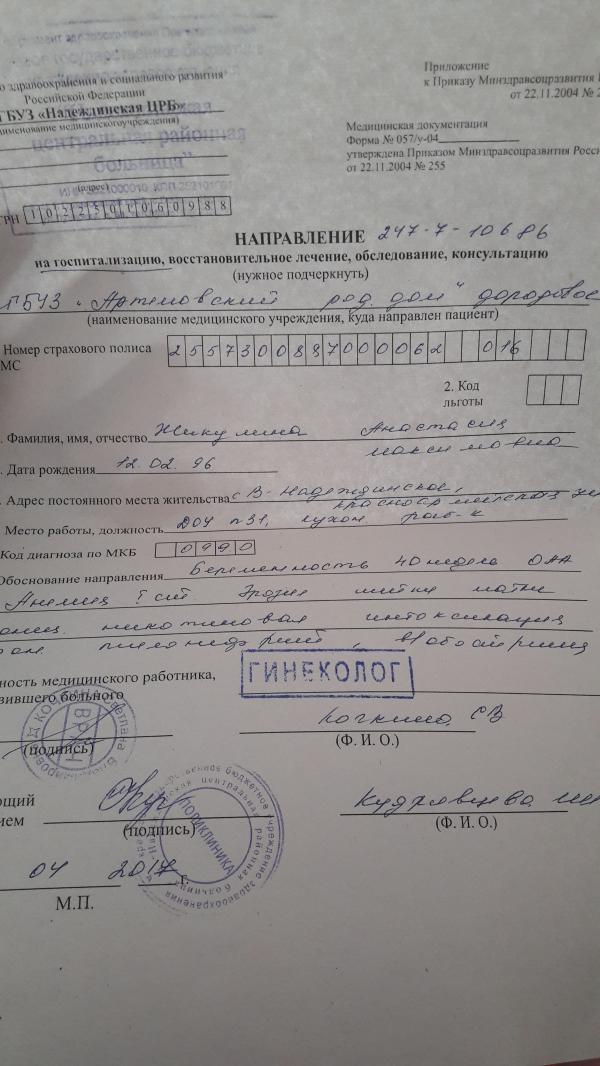 о здравоохранения и социального развития
Российской Федерации
БУЗ «Надеждинская ЦРБ»
(наименование медицинского учреждения)
центральная районная
больница"
(адрес)
ГРН 1022501060988
Приложение
к Приказу Минздравсоцразвития
от 22.11.2004 № 2
Медицинская документация
Форма № 057/у-04
утверждена Приказом Минздравсоцразвития Росси
от 22.11.2004 № 255
НАПРАВЛЕНИЕ 247-7-10686
на госпитализацию, восстановительное лечение, обследование, консультацию
(нужное подчеркнуть)
ГБУЗ "Артемовский род. дом" дородовое
(наименование медицинского учреждения, куда направлен пациент)
Номер страхового полиса
МС 2557300897000062 016
2. Код
льготы
. Фамилия, имя, отчество Жикулина Анастасия
Максимовна
. Дата рождения 12.02.96
. Адрес постоянного места жительства с В-Надеждинское,
Место работы, должность ДОУ №31, кухон раб-к
Код диагноза по МКБ О990
Обоснование направления Беременность 40 недель ОАА
Анемия I ст Эрозия шейки матки
никотиновая интоксикация
пиелонефрит
ность медицинского работника,
вившего больного
ГИНЕКОЛОГ
ВРАЧ
Светлана
(подпись)
Когкина СВ
(Ф. И. О.)
ющий
нием
(подпись)
Кудрявцева
(Ф. И. О.)
ПОЛИКЛИНИКА
04 2017 г.
М.П.